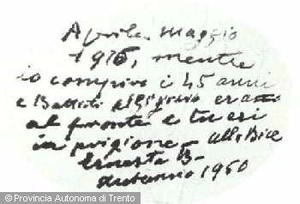 Aprile-maggio
1916, mentre
io compivo i 45 anni
e Battisti era
al fronte e tu eri
in prigione - alla Bice
Ernesta B-
Autunno 1950
© Provincia Autonoma di Trento